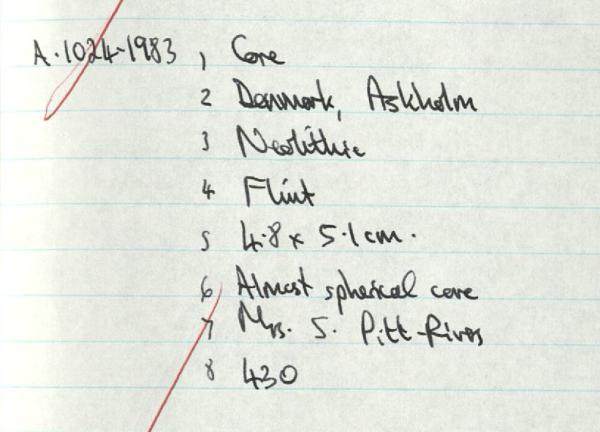 A.1024-1983 1 Core
2 Denmark, Askholm
3 Neolithic
4 Flint
5 4.8 x 5.1 cm.
6 Almost spherical core
7 Mrs. S. Pitt-Rivers
8 430